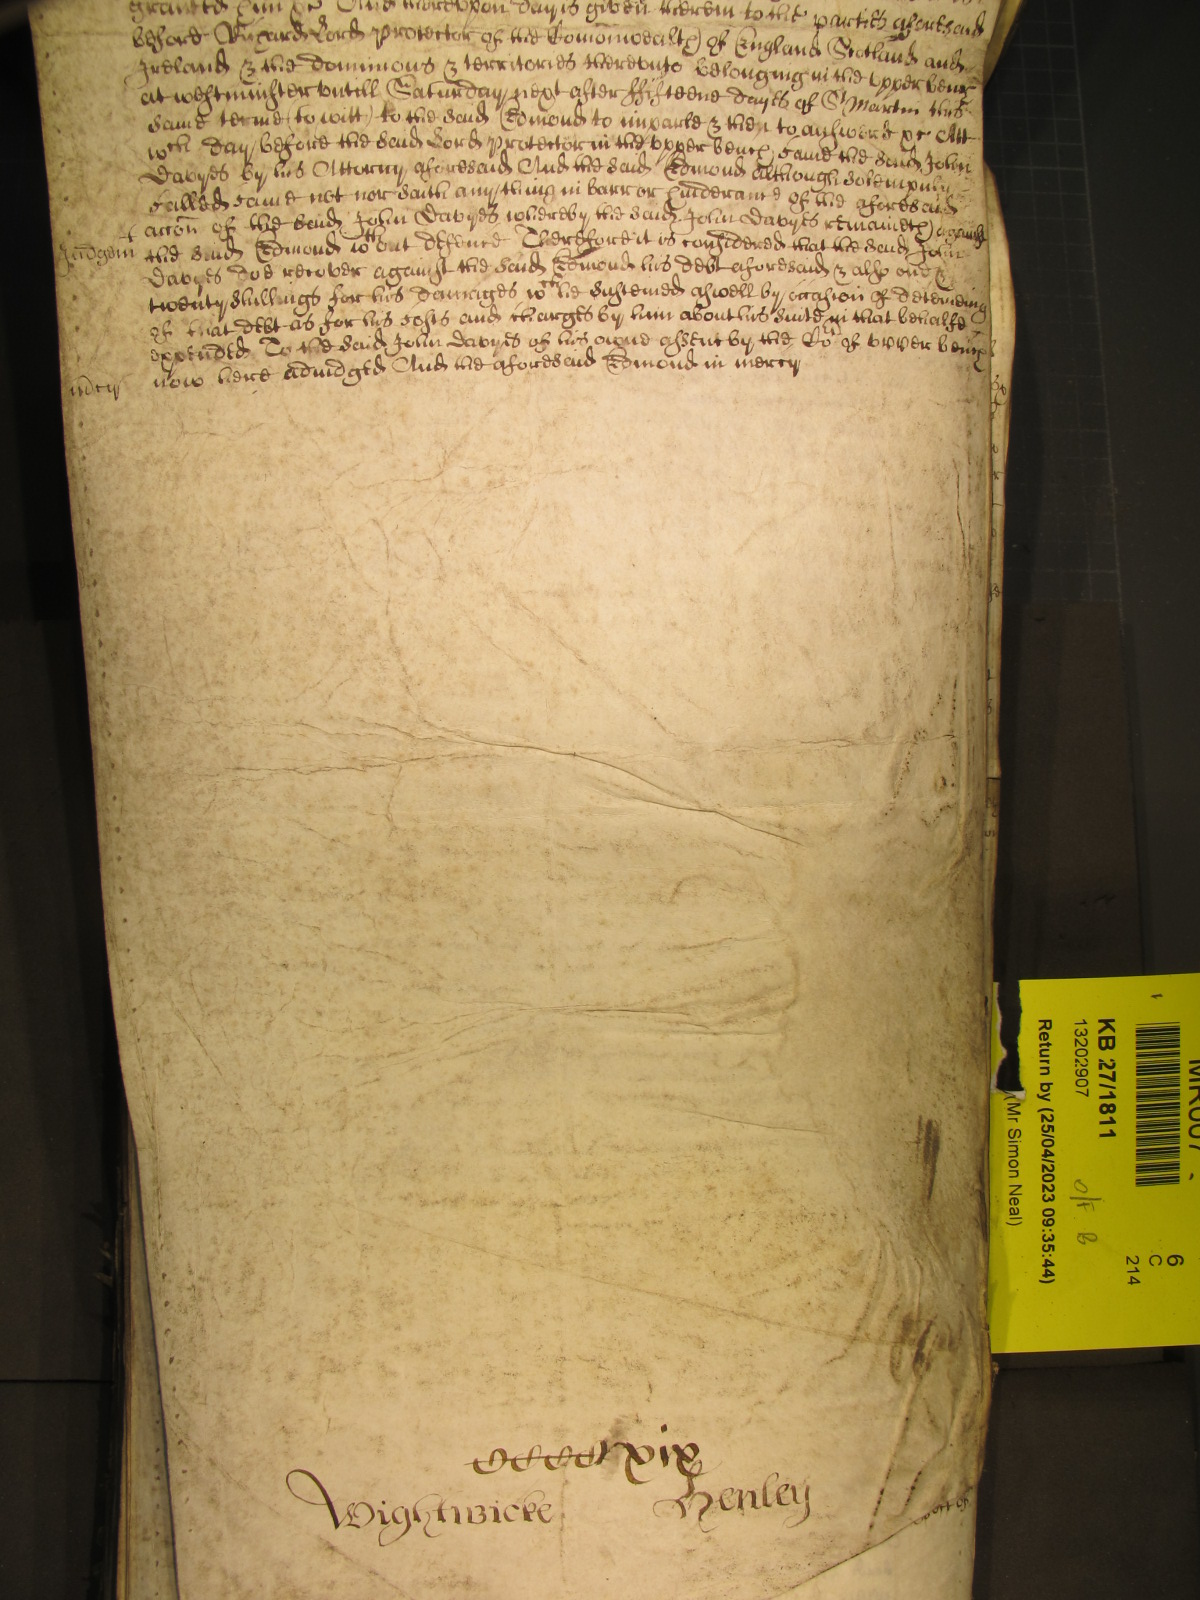 granted him &c And thereupon day is given therein to the parties aforesaid
before Richard Lord Protector of the Comonwealth of England Scotland and
Ireland & the dominions & territories thereunto belonging in the upper bench
at westminster untill Saturday next after fifteene dayes of St Martin this
same terme (to witt) to the said Edmond to imparle & then to answere &c Att
wch day before the said Lord Protector in the upper bench came the said John
Davyes by his Attorny aforesaid And the said Edmond although solempnly
called came not nor saith any thing in barr or hinderance of the aforesaid
accon of the said John Davyes whereby the said John Davyes remaineth against
Judgem the said Edmond wthout defence Therefore it is considered that the said John
Davyes doe recover against the said Edmond his debt aforesaid & also one &
twenty shillings for his damages wch he susteined aswell by occasion of deteineing
of that debt as for his costs and charges by him about his suite in that behalfe
expended To the said John Davyes of his owne assent by the Cort of upper bench
now here adiudged And the aforesaid Edmond in mercy
mcy
ccccxix
Wightwicke Henley
KB 27/1811
13202907
Return by (25/04/2023 09:35:44)
(Mr Simon Neal)
O/F B
6
C
214